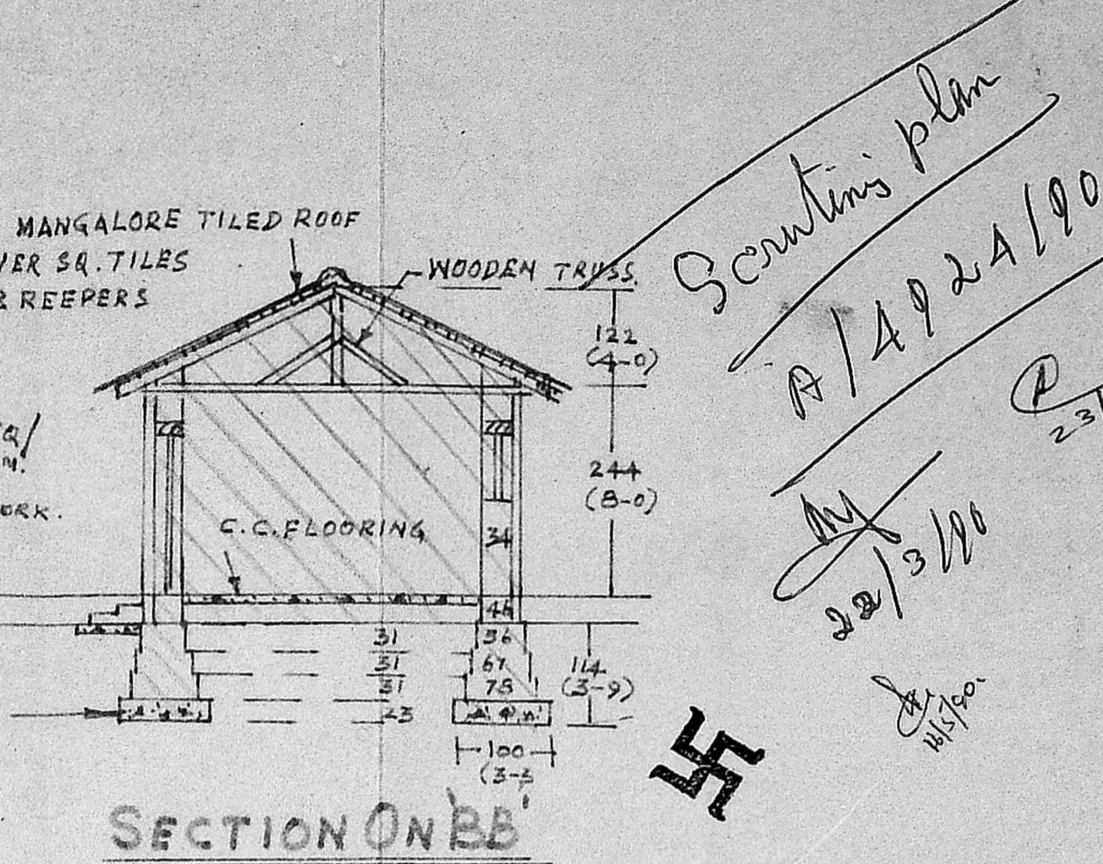 MANGALORE TILED ROOF
VER SQ. TILES
& REEPERS
WOODEN TRUSS.
122
(4-0)
244
(8-0)
C.C. FLOORING
34
46
31
31
31
23
56
67
78
114
(3-9)
100
(3-3
SECTION ON 'BB'
ORK.
Scrutinis plan
A/4924/90
22/3/90
16/3/90.